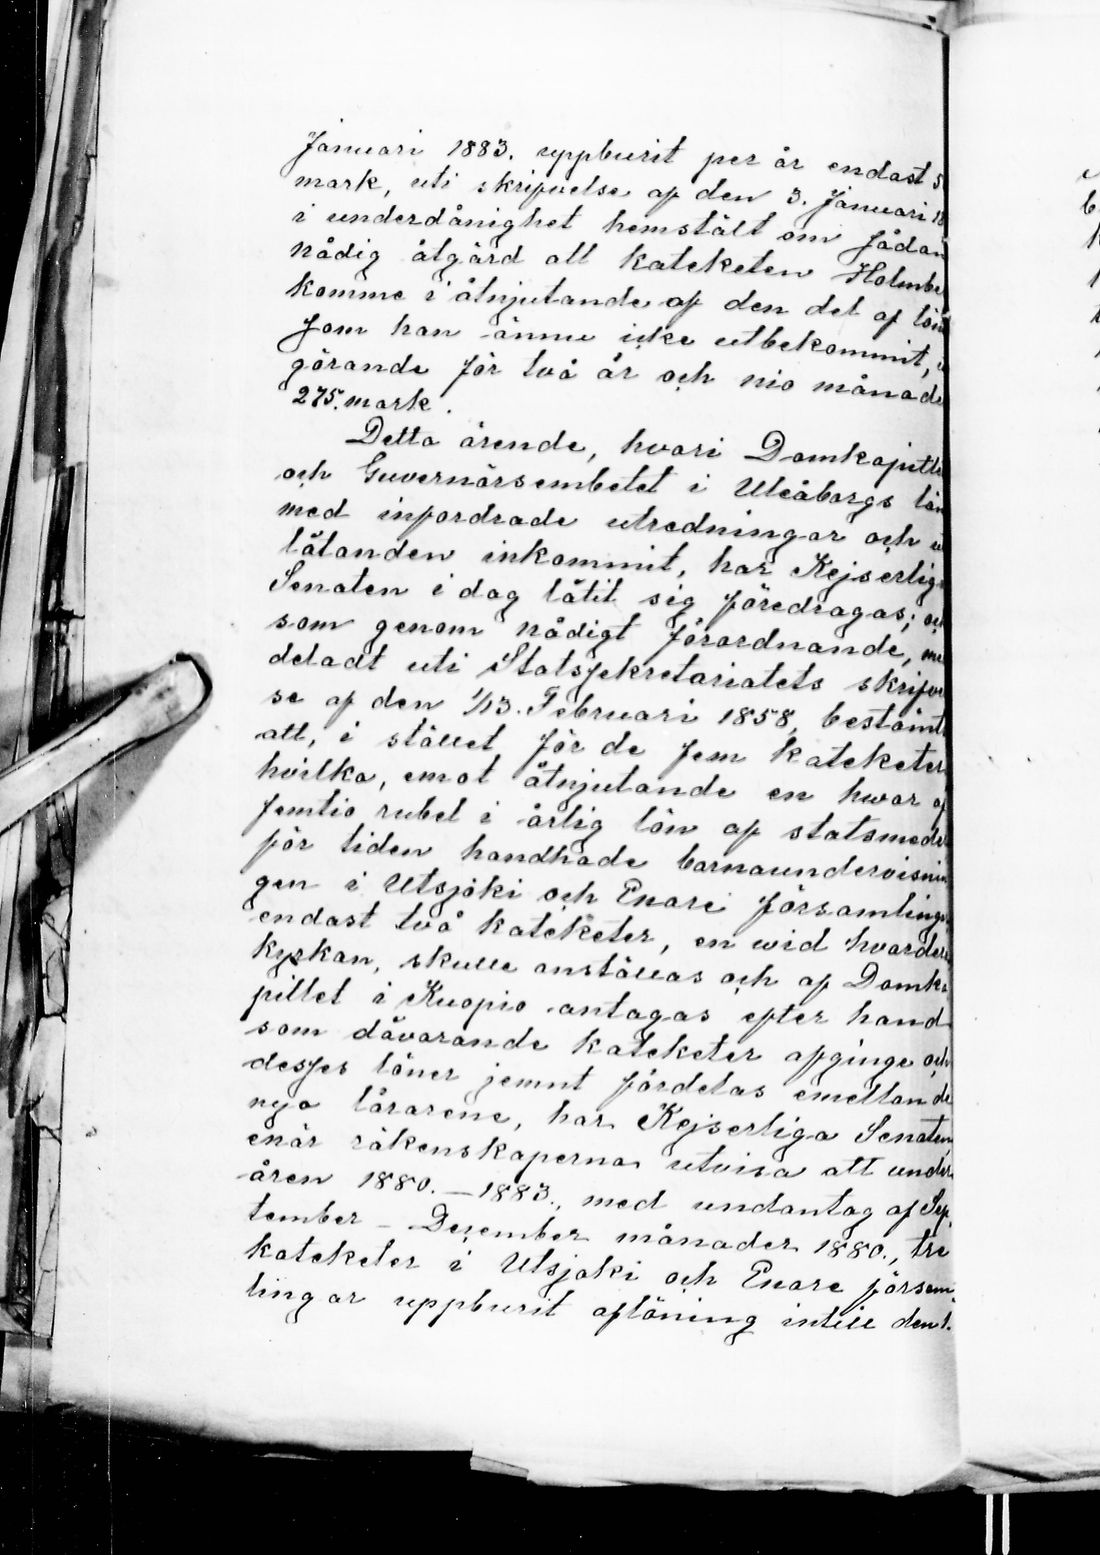 Januari 1883. uppburit per år endast 5
mark, uti skrifvelse af den 3. Januari 18
i underdånighet hemstält om sådan
nådig åtgärd att kateketen Holmbe
komme i åtnjutande af den del af lön
som han ännu icke utbekommit, u
görande för två år och nio månade
275. mark.
Detta ärende, hvari Domkapitle
och Guvernörsembetet i Uleåborgs län
med infordrade utredningar och u
låtanden inkommit, har Kejserlig
Senaten i dag låtit sig föredragas; och
som genom nådigt förordnande, me
deladt uti Statssekretariatets skrifvel
se af den 1/13. Februari 1858, bestämt
att, i stället för de fem kateketer
hvilka, emot åtnjutande en hwar af
femtio rubel i årlig lön af statsmede
för tiden handhade barnaundervisnin
gen i Utsjoki och Enare församlinga
endast två kateketer, en wid hvardera
kyrkan, skulle anställas och af Domka
pitlet i Kuopio antagas efter hand
som dåvarande kateketer afginge och
desses löner jemnt fördelas emellan de
nya lärarene, har Kejserliga Senaten
enär räkenskaperna utvisa att under
åren 1880.–1883., med undantag af Sep-
tember – December månader 1880., tre
kateketer i Utsjoki och Enare försam-
lingar uppburit aflöning intill den 1.